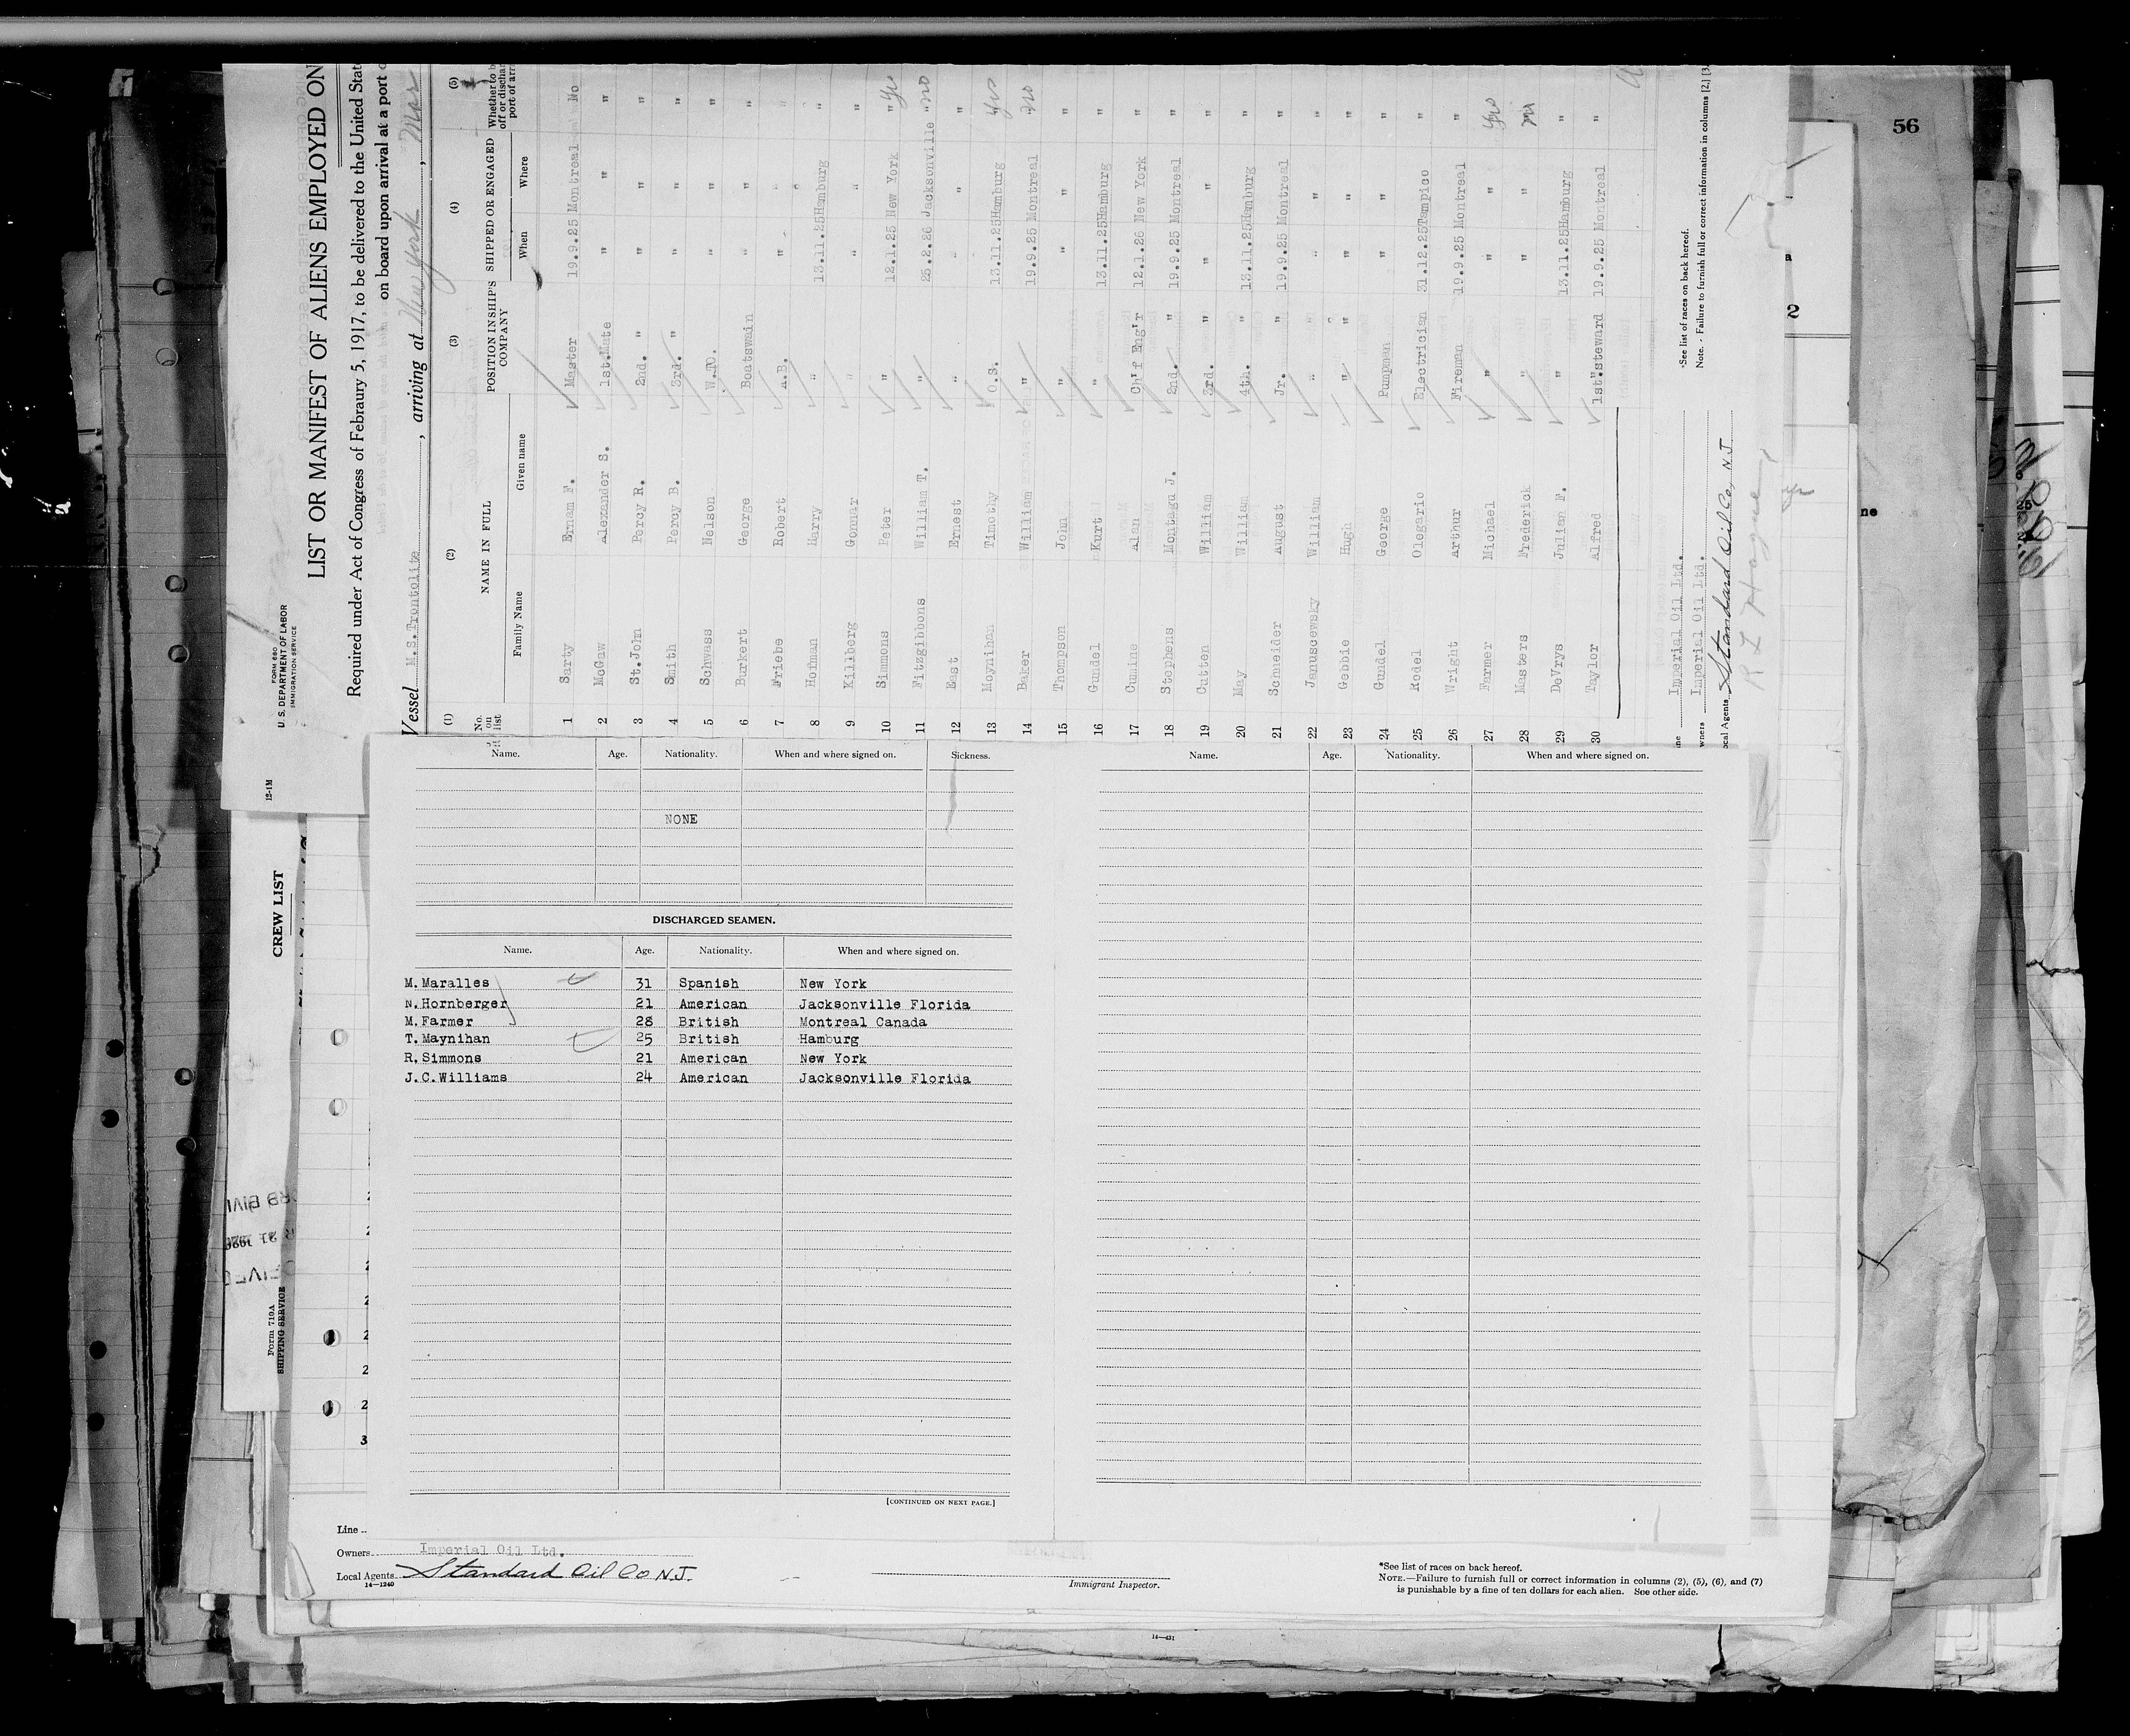 56
12-1M
FORM 680
U. S. DEPARTMENT OF LABOR
IMMIGRATION SERVICE
LIST OR MANIFEST OF ALIENS EMPLOYED ON
Required under Act of Congress of Febraury 5, 1917, to be delivered to the United Stat
on board upon arrival at a port o
Vessel M.S. Trontolite, arriving at New York, Mar
(1) (2) (3) (4) (5)
No. on list NAME IN FULL POSITION IN SHIP'S COMPANY SHIPPED OR ENGAGED Whether to be
off or dischar
port of arri
Family Name Given name When Where
1 Sarty Ernam F. Master 19.9.25 Montreal No
2 McGaw Alexander S. 1st.Mate " " "
3 St.John Percy R. 2nd. " " " "
4 Smith Percy B. 3rd. " " " "
5 Schwass Nelson W.O. " " "
6 Burkert George Boatswain " " "
7 Friebe Robert A.B. " " "
8 Hofman Harry " 13.11.25 Hamburg "
9 Killberg Gonnar " " " "
10 Simmons Peter " 12.1.25 New York " Yes
11 Fitzgibbons William T. " 25.2.26 Jacksonville " no
12 East Ernest " " " "
13 Moynihan Timothy O.S. 13.11.25 Hamburg Yes
14 Baker William " 19.9.25 Montreal no
15 Thompson John " " " "
16 Gundel Kurt " 13.11.25 Hamburg "
17 Cumine Alan Ch'f Eng'r 12.1.26 New York "
18 Stephens Montagu J. 2nd. " 19.9.25 Montreal "
19 Cutten William 3rd. " " " "
20 May William 4th. " 13.11.25 Hamburg "
21 Schneider August Jr. " 19.9.25 Montreal "
22 Januscewsky William " " " "
23 Gebbie Hugh " " " "
24 Gundel George Pumpman " " "
25 Rodel Olegario Electrician 31.12.25 Tampico "
26 Wright Arthur Fireman 19.9.25 Montreal "
27 Farmer Michael " " " Yes
28 Masters Frederick " " " no
29 DeVrys Julian F. " 13.11.25 Hamburg "
30 Taylor Alfred 1st.steward 19.9.25 Montreal "
Imperial Oil Ltd.
wners Imperial Oil Ltd.
ocal Agents Standard Oil Co, N.J
*See list of races on back hereof.
Note. - Failure to furnish full or correct information in columns [2,] [3,
CREW LIST
Form 710A
SHIPPING SERVICE
Name. Age. Nationality. When and where signed on. Sickness.
NONE
DISCHARGED SEAMEN.
Name. Age. Nationality. When and where signed on.
M. Maralles 31 Spanish New York
N. Hornberger 21 American Jacksonville Florida
M. Farmer 28 British Montreal Canada
T. Maynihan 25 British Hamburg
R. Simmons 21 American New York
J. C. Williams 24 American Jacksonville Florida
[CONTINUED ON NEXT PAGE.]
Name. Age. Nationality. When and where signed on.
Line
Owners Imperial Oil Ltd.
Local Agents Standard Oil Co N.J.
14—1240
Immigrant Inspector.
*See list of races on back hereof.
NOTE.—Failure to furnish full or correct information in columns (2), (5), (6), and (7)
is punishable by a fine of ten dollars for each alien. See other side.
14—431